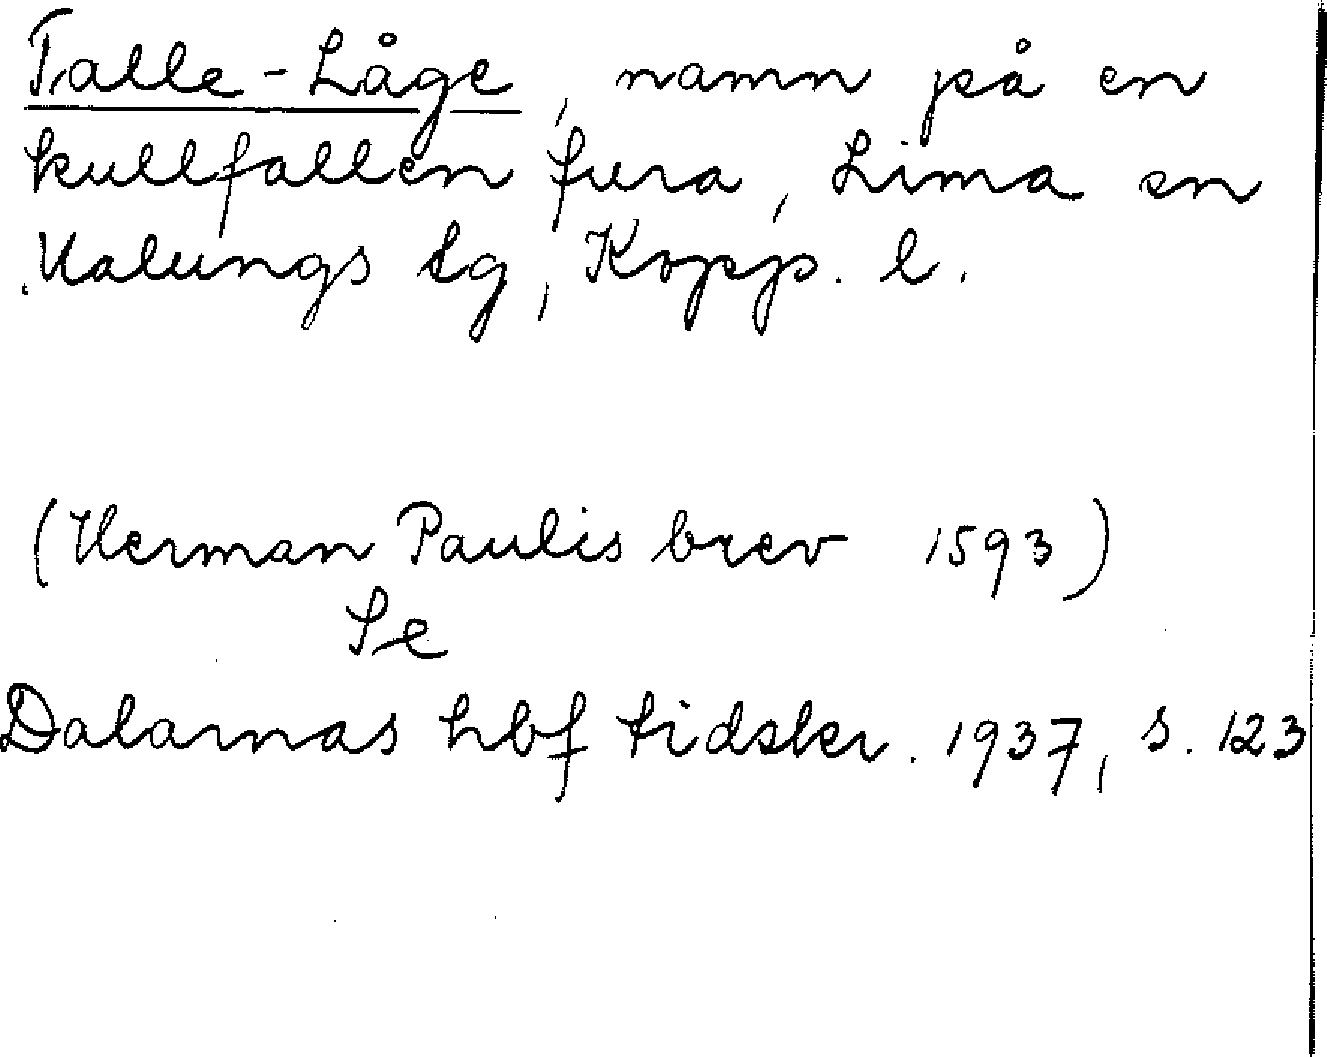 Talle-Låge, namn på en
kullfallen fura, Lima sn
Malungs tg, Kopp. l.
(Herman Paulis brev 1593)
Se
Dalarnas hbf tidskr. 1937, s. 123